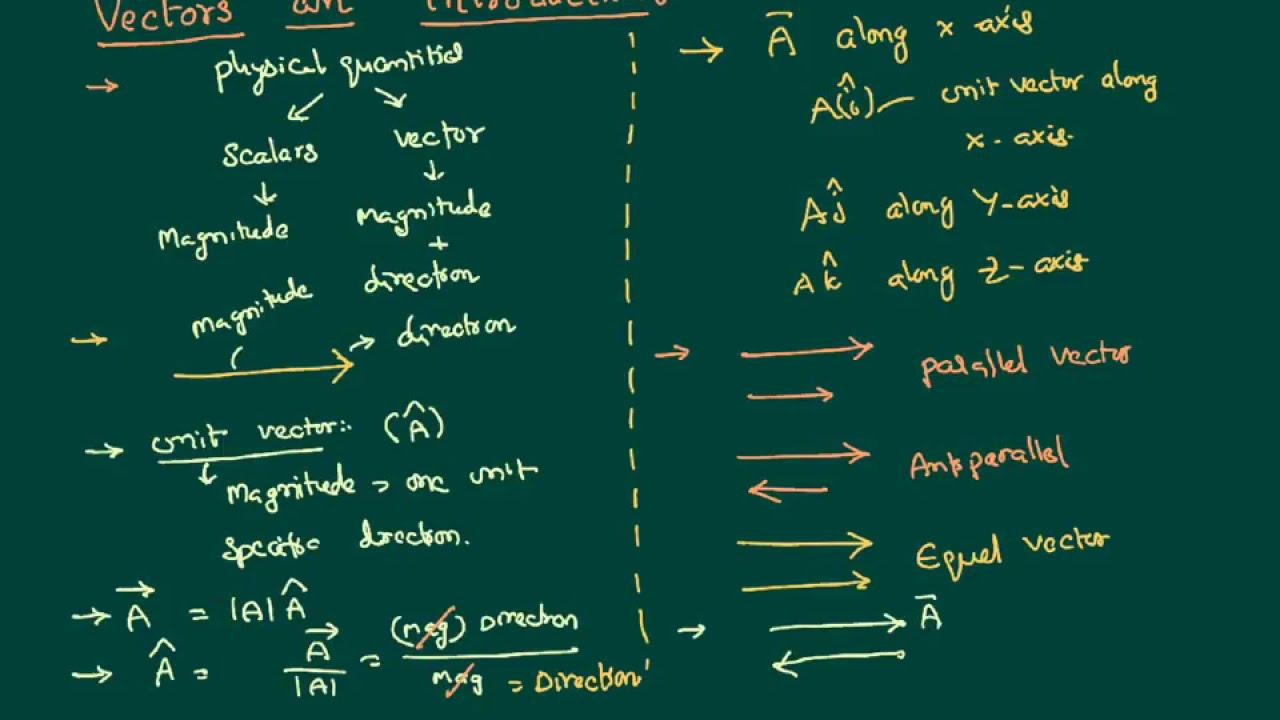 Vectors an introduction
→ physical quantities
Scalars vector
↓ ↓
Magnitude magnitude
+
direction
→ magnitude → direction
→ unit vector:- (Â)
Magnitude = one unit
Specific direction.
→ A⃗ = |A| Â
→ Â = A⃗/|A| = (mag) Direction/mag = Direction
→ A̅ along x axis
A(î) — unit vector along
x-axis.
Aĵ along Y-axis
Ak̂ along Z-axis
→ parallel vector
Antiparallel
Equal vector
→ A̅